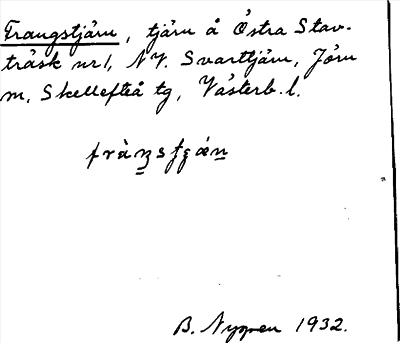 Frangstjärn, tjärn å Östra Stav-
träsk nr 1, NV. Svarttjärn, Jörn
sn, Skellefteå tg, Västerb. l.
B. Nygren 1932.